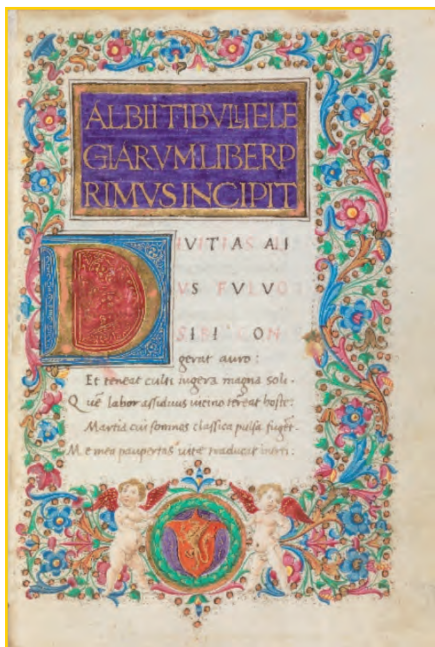 ALBII TIBULLI ELE
GIARVM LIBER P
RIMVS INCIPIT
DIVITIAS ALI
VS FVLVO
SIBI CON
gerat auro :
Et teneat culti iugera magna soli .
Que labor assiduus uicino terreat hoste :
Martia cui somnos classica pulsa fugent .
Me mea paupertas uite traducat inerti :